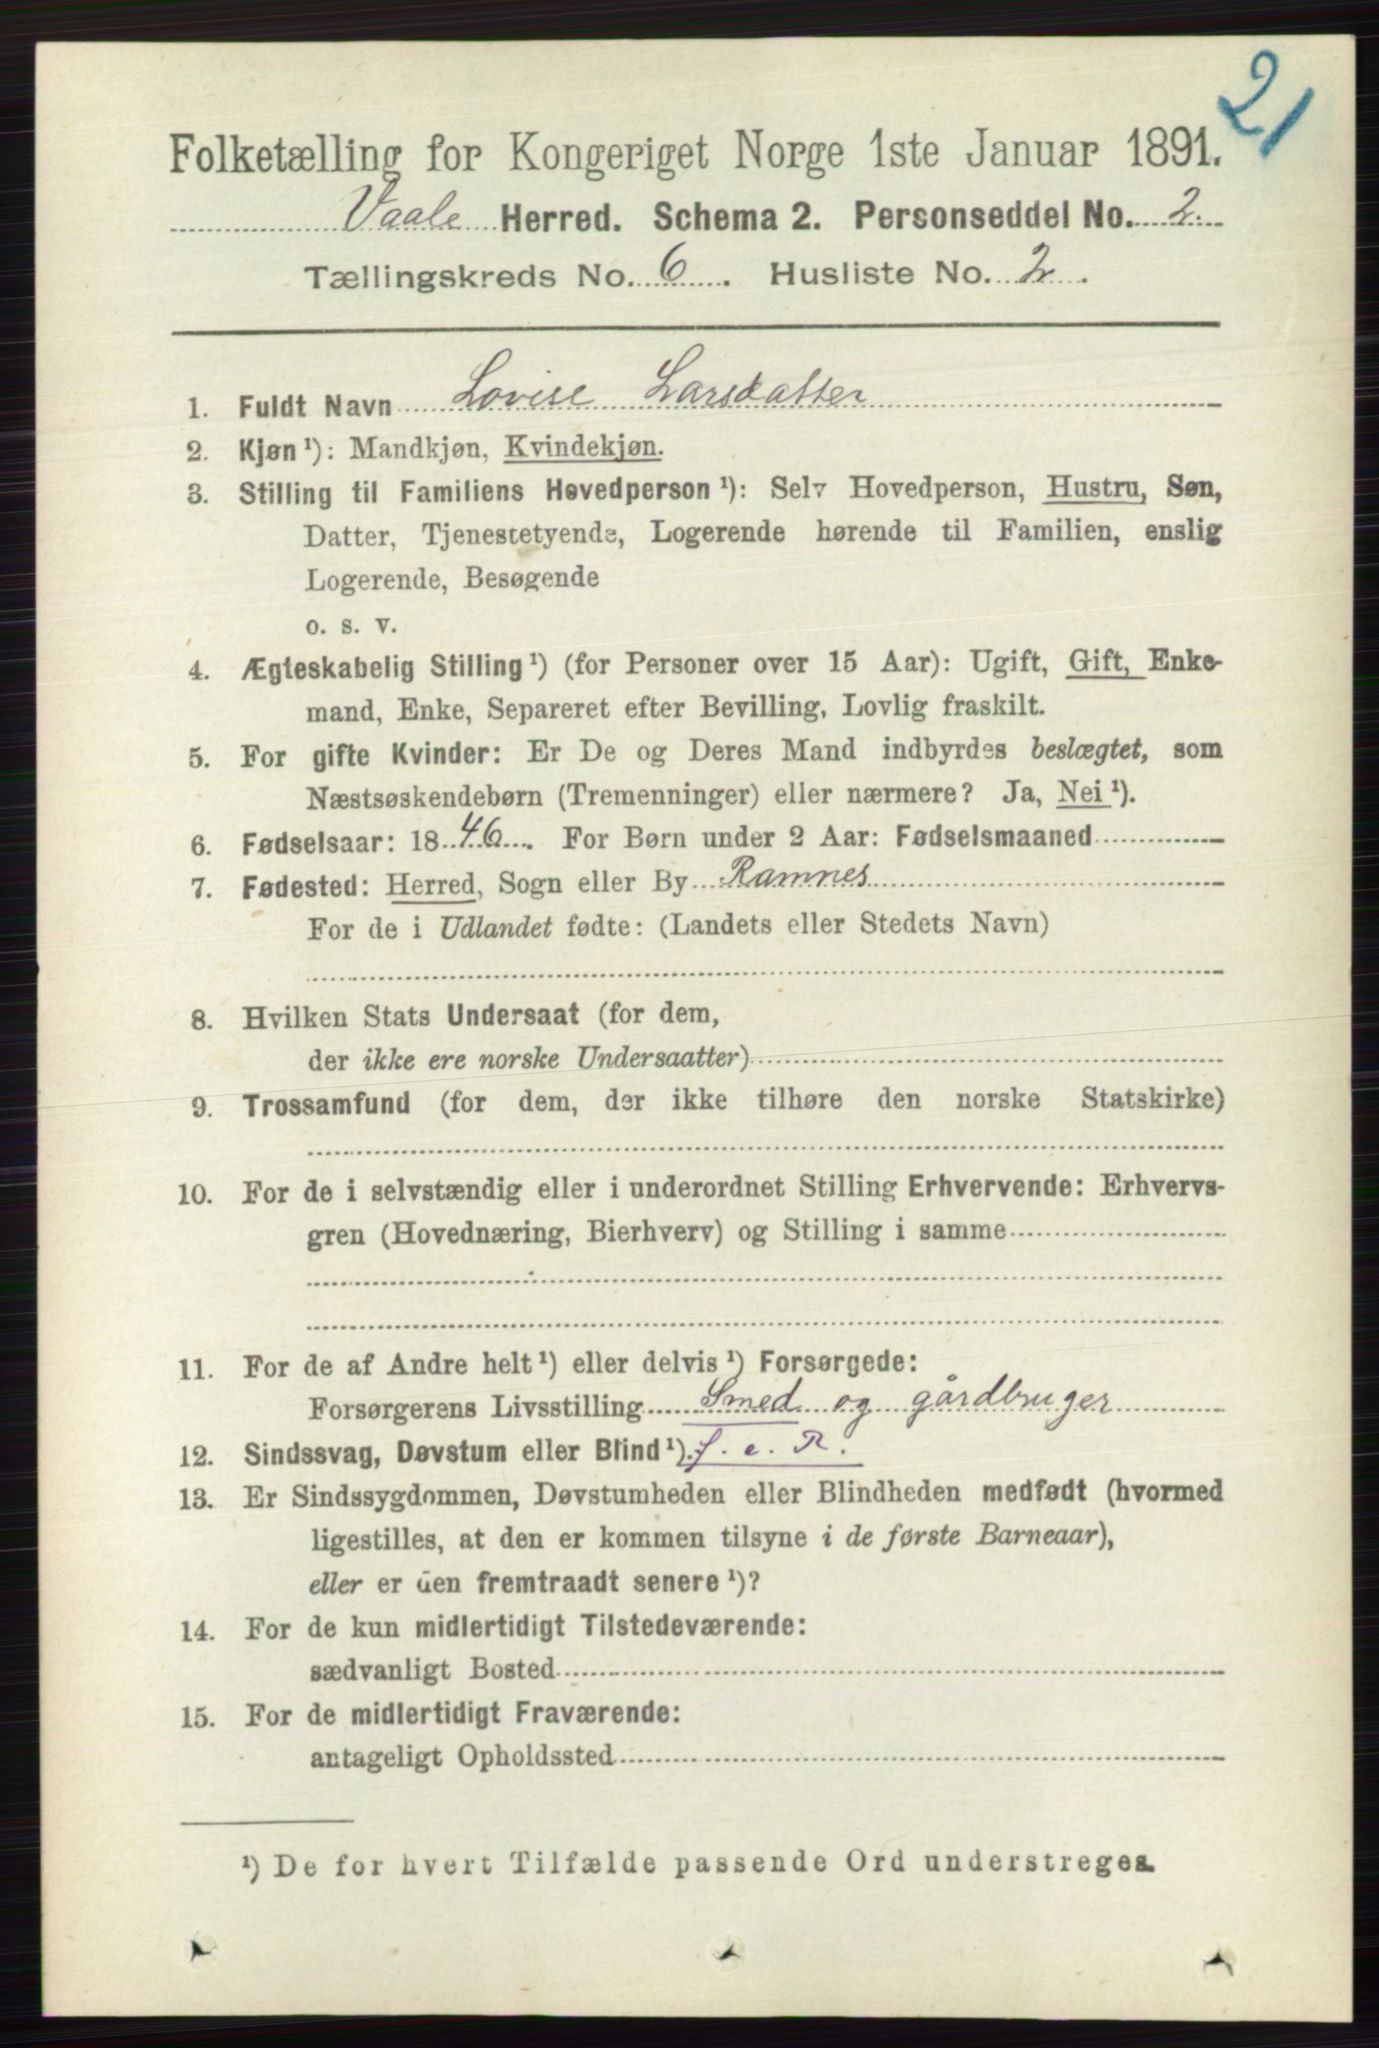 21
Folketælling for Kongeriget Norge 1ste Januar 1891.
Vaale Herred. Schema 2. Personseddel No. 2.
Tællingskreds No. 6. Husliste No. 2.
1. Fuldt Navn Lovise Larsdatter
2. Kjøn¹): Mandkjøn, Kvindekjøn.
3. Stilling til Familiens Hovedperson¹): Selv Hovedperson, Hustru, Søn,
Datter, Tjenestetyende, Logerende hørende til Familien, enslig
Logerende, Besøgende
o. s. v.
4. Ægteskabelig Stilling¹) (for Personer over 15 Aar): Ugift, Gift, Enke-
mand, Enke, Separeret efter Bevilling, Lovlig fraskilt.
5. For gifte Kvinder: Er De og Deres Mand indbyrdes beslægtet, som
Næstsøskendebørn (Tremenninger) eller nærmere? Ja, Nei¹).
6. Fødselsaar: 1846. For Børn under 2 Aar: Fødselsmaaned
7. Fødested: Herred, Sogn eller By Ramnes
For de i Udlandet fødte: (Landets eller Stedets Navn)
8. Hvilken Stats Undersaat (for dem,
der ikke ere norske Undersaatter)
9. Trossamfund (for dem, der ikke tilhøre den norske Statskirke)
10. For de i selvstændig eller i underordnet Stilling Erhvervende: Erhvervs-
gren (Hovednæring, Bierhverv) og Stilling i samme
11. For de af Andre helt¹) eller delvis¹) Forsørgede:
Forsørgerens Livsstilling Smed og gårdbruger
12. Sindssvag, Døvstum eller Blind¹). f. e. R.
13. Er Sindssygdommen, Døvstumheden eller Blindheden medfødt (hvormed
ligestilles, at den er kommen tilsyne i de første Barneaar),
eller er den fremtraadt senere¹)?
14. For de kun midlertidigt Tilstedeværende:
sædvanligt Bosted
15. For de midlertidigt Fraværende:
antageligt Opholdssted
¹) De for hvert Tilfælde passende Ord understreges.